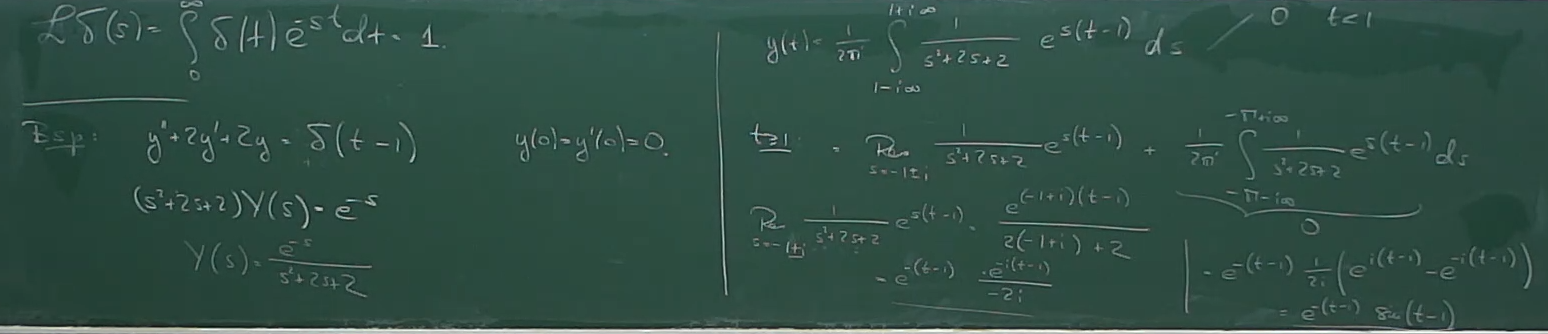 ℒδ(s) = ∫₀^∞ δ(t) e^{-st} dt = 1.
Bsp: y'' + 2y' + 2y = δ(t-1)   y(0) = y'(0) = 0.
(s²+2s+2) Y(s) = e^{-s}
Y(s) = e^{-s} / (s²+2s+2)
y(t) = 1/(2πi) ∫_{1-i∞}^{1+i∞} 1/(s²+2s+2) e^{s(t-1)} ds / 0   t<1
t≥1: = Res_{s=-1±i} 1/(s²+2s+2) e^{s(t-1)} + 1/(2πi) ∫_{-Π-i∞}^{-Π+i∞} 1/(s²+2s+2) e^{s(t-1)} ds
0
Res_{s=-1±i} 1/(s²+2s+2) e^{s(t-1)} = e^{(-1+i)(t-1)} / (2(-1+i)+2)
= e^{-(t-1)} · e^{-i(t-1)} / (-2i)
= e^{-(t-1)} 1/(2i) (e^{i(t-1)} - e^{-i(t-1)})
= e^{-(t-1)} sin(t-1)